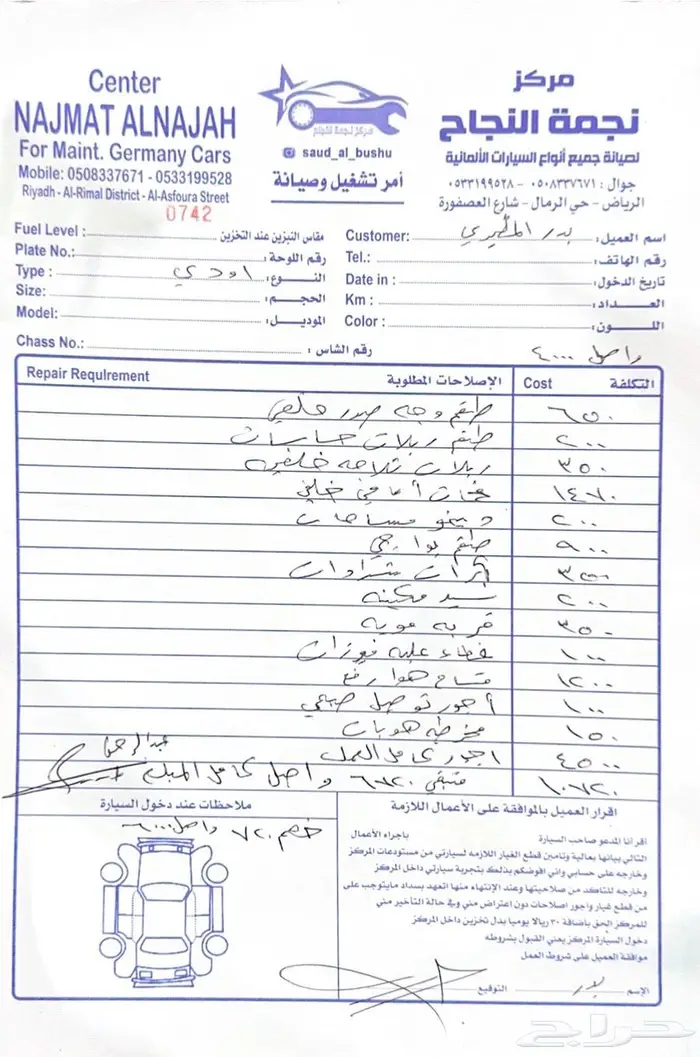 Center
NAJMAT ALNAJAH
For Maint. Germany Cars
Mobile: 0508337671 - 0533199528
Riyadh - Al-Rimal District - Al-Asfoura Street
0742
مركز نجمة النجاح
saud_al_bushu
أمر تشغيل وصيانة
مركز
نجمة النجاح
لصيانة جميع أنواع السيارات الألمانية
جوال : ٠٥٠٨٣٣٧٦٧١ - ٠٥٣٣١٩٩٥٢٨
الرياض - حي الرمال - شارع العصفورة
Fuel Level : مقاس البنزين عند التخزين
Plate No.: رقم اللوحة :
Type : اودي النـــوع:
Size: الحجـم:
Model: الموديـل:
Chass No.: رقم الشاس :
Customer: بدر المطيري اسم العميل:
Tel.: رقم الهاتف:
Date in : تاريخ الدخول:
Km : العـــداد:
Color : اللـــون:
واصل ٤٠٠٠
Repair RequIrement الإصلاحات المطلوبة Cost التكلفة
طقم وجه صدر خلفي ٦٥٠
طقم ربلات حساسات ٢٠٠
ربلات ثلاجه خلفيه ٣٥٠
فحمات أمامي خلفي ١٤٧٠
مساحات ٢٠٠
طقم بواجي ٩٠٠
شدادات ٣٥٠
سيد مكينه ٢٠٠
قربه مويه ٣٥٠
غطاء علبه فيوزات ١٠٠
هوا رفع ١٢٠٠
أجور توصيل ١٠٠
مخرطه هوبات ١٥٠
اجور كامل العمل ٤٥٠٠
متبقي ٦٧٢٠ واصل كامل المبلغ ١٠٧٢٠
عبدالرحمن
ملاحظات عند دخول السيارة
خصم ٧٢٠ واصل ٦٠٠٠
اقرار العميل بالموافقة على الأعمال اللازمة
أقر أنا المدعو صاحب السيارة باجراء الأعمال
التالي بيانها بعالية وتامين قطع الغيار اللازمه لسيارتي من مستودعات المركز
وخارجه على حسابي واني افوضكم بذلك بتجربة سيارتي داخل المركز
وخارجه للتاكد من صلاحيتها وعند الإنتهاء منها اتعهد بسداد مايتوجب على
من قطع غيار واجور اصلاحات دون اعتراض مني وفي حالة التأخير مني
للمركز الحق باضافة ٣٠ ريالا يوميا بدل تخزين داخل المركز
دخول السيارة المركز يعني القبول بشروطه
موافقة العميل على شروط العمل
الإسم بدر التوقيع
حراج